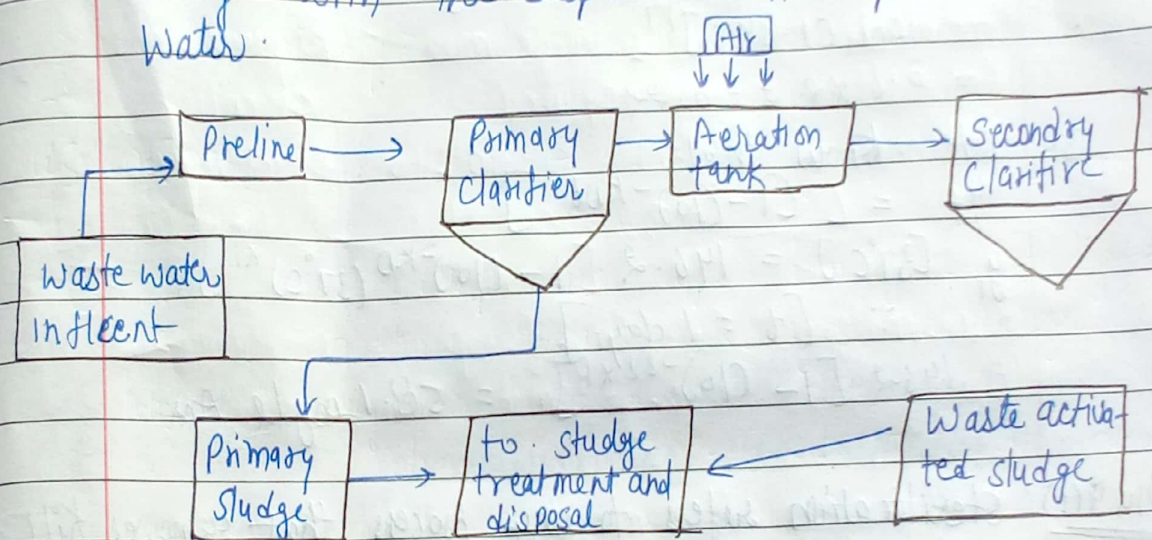 Water.
Air
Preline
Primary
Clarifier
Aeration
tank
Secondry
Clarifire
Waste water
infleent
Primary
Sludge
to. studge
treatment and
disposal
Waste activa-
ted sludge